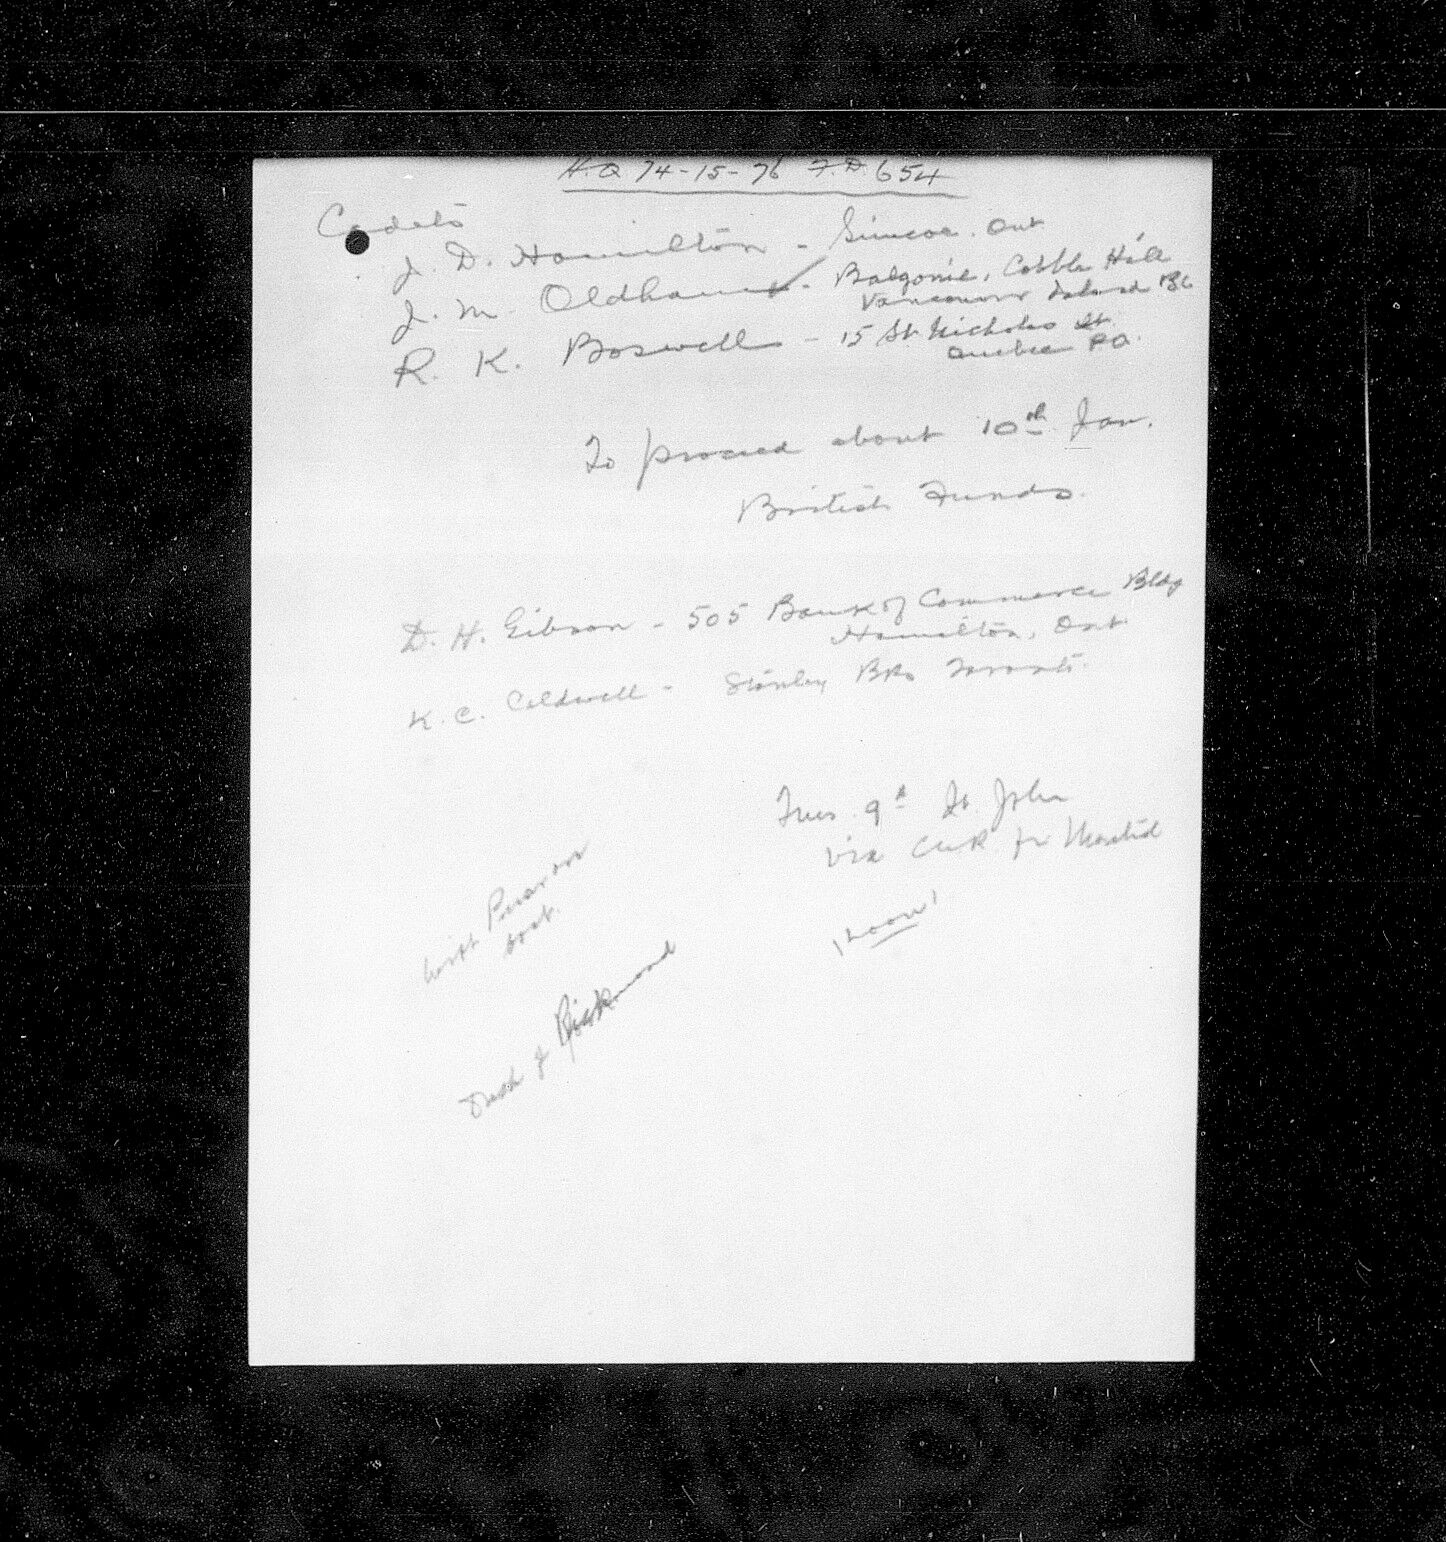 H.Q 74-15-76 F.D. 654
Cadets
J. D. Hamilton - Simcoe. Ont
J. M. Oldham - Balgonie, Cobble Hill
Vancouver Island BC
R. K. Boswell - 15 St Nicholas St
Quebec PQ.
To proceed about 10th Jan.
British Funds.
D. H. Gibson - 505 Bank of Commerce Bldg
Hamilton, Ont
K. C. Caldwell - Stanley Bks Toronto.
Tues. 9th St. John
via CNR
with Pearson
boat.
noon